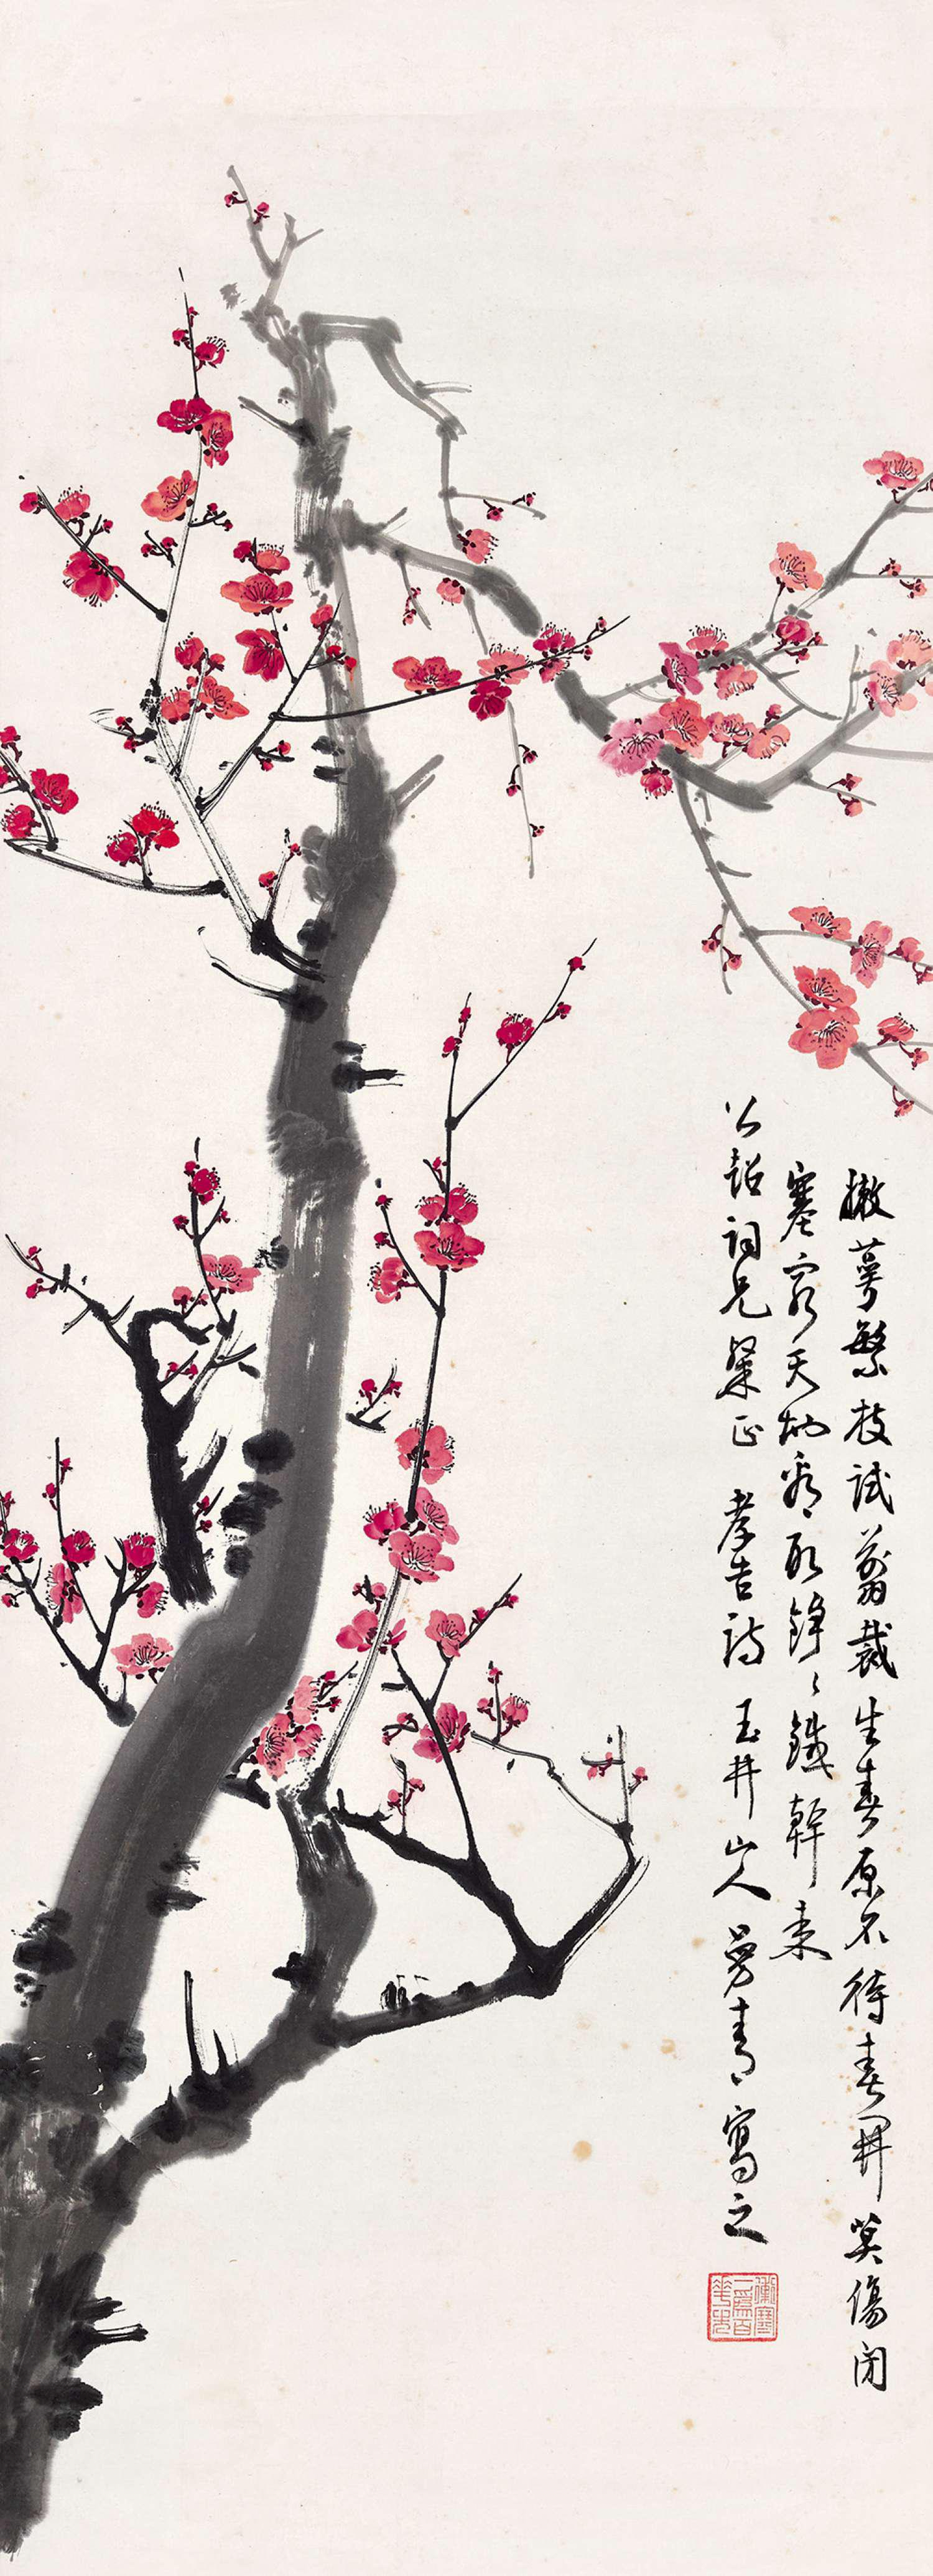 嫩萼繁枝試剪裁生春原不待春開莫傷閉
塞窮天地看取錚々鐵幹來
公超詞兄粲正 孝吉詩 玉井山人 曼青寫之